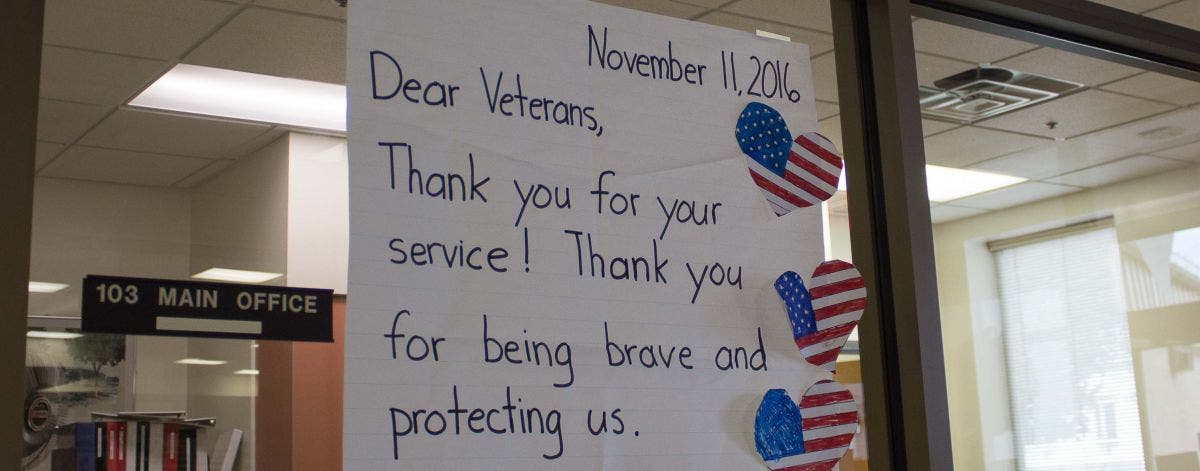 November 11, 2016
Dear Veterans,
Thank you for your
service! Thank you
for being brave and
protecting us.
103 MAIN OFFICE